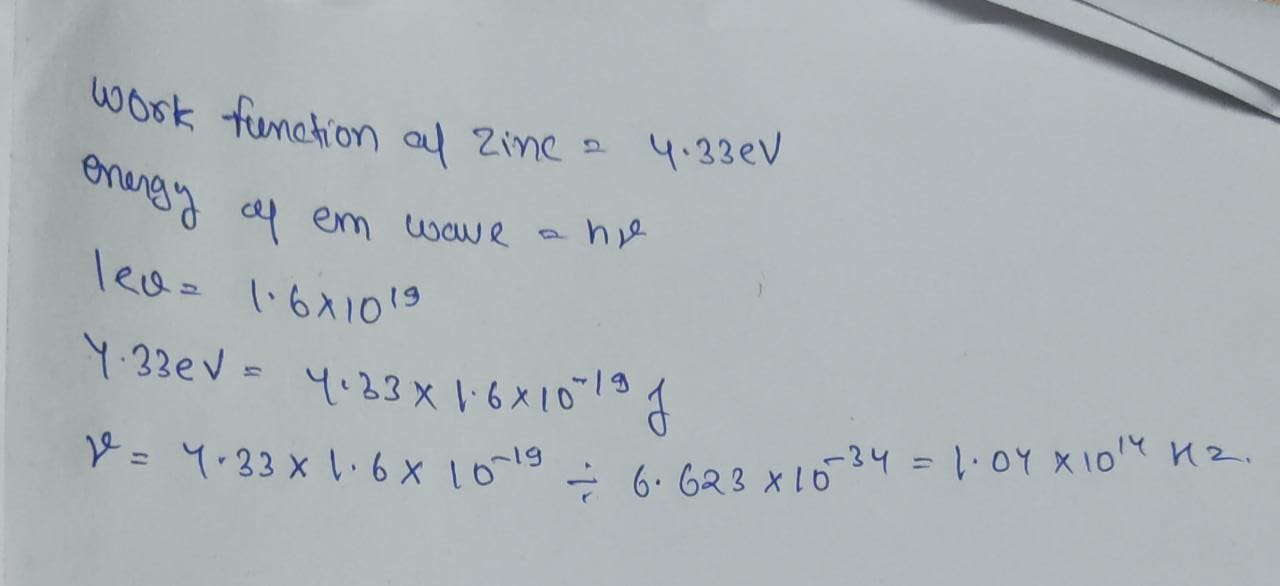 work function of zinc = 4.33eV
energy of em wave = hν
1ev = 1.6x10¹⁹
4.33eV = 4.33 x 1.6x10⁻¹⁹ J
ν = 4.33 x 1.6 x 10⁻¹⁹ ÷ 6.623 x10⁻³⁴ = 1.04 x10¹⁴ Hz.